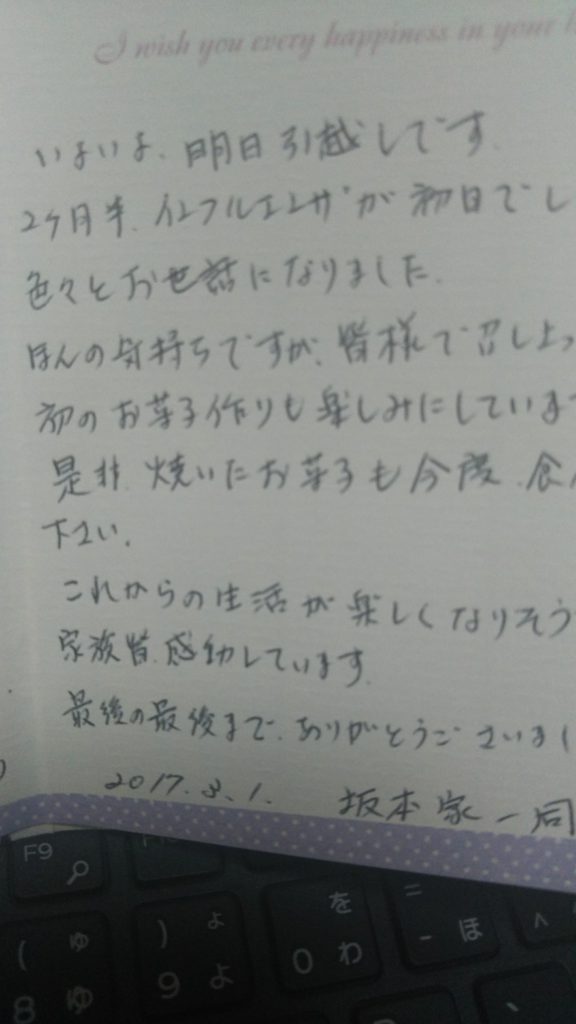 I wish you every happiness in your
いよいよ、明日引越しです.
2ヶ月半、インフルエンザが初日でし
色々とお世話になりました.
ほんの気持ちですが、皆様で召し上っ
初のお菓子作りも楽しみにしていま
是非、焼いたお菓子も今度、食
下さい.
これからの生活が楽しくなりそう
家族皆、感動しています.
最後の最後まで、ありがとうございまし
2017.3.1. 坂本家一同
F9
を = ^
( ゅ ) ょ 0 わ - ほ
8 ゆ 9 よ